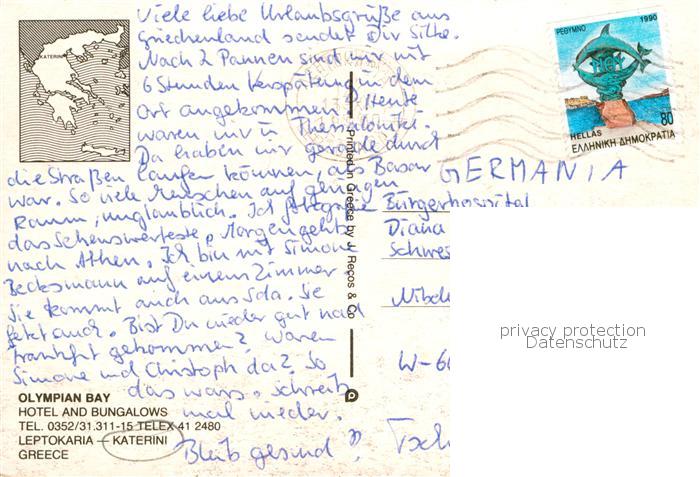 Viele liebe Urlaubsgrüße aus
Griechenland sendet Dir Silke.
Nach 2 Pannen sind wir mit
6 Stunden Verspätung in dem
Ort angekommen. Heute
waren wir in Thessaloniki.
Da haben wir gerade durch
die Straßen laufen können, als Basar
war. So viele Menschen auf geringen
Raum, unglaublich. Ich
das Sehenswerteste. Morgen geht's
nach Athen. Ich bin mit Simone
Becksmann auf einem Zimmer.
Sie kommt auch aus Sda. Sie
fetzt auch. Bist Du wieder gut nach
Frankfrt gekommen? Waren
Simone und Christoph da? So
das wars. Schreib
mal wieder.
Bleib gesund!
Tsch
KATERINI
OLYMPIAN BAY
HOTEL AND BUNGALOWS
TEL. 0352/31.311-15 TELEX 41 2480
LEPTOKARIA – KATERINI
GREECE
Printed in Greece by J Reços & Co
ΡΕΘΥΜΝΟ 1990
80
HELLAS
ΕΛΛΗΝΙΚΗ ΔΗΜΟΚΡΑΤΙΑ
GERMANIA
Bürgerhospital
Diana
Schwes
Nibel
W-60
privacy protection
Datenschutz